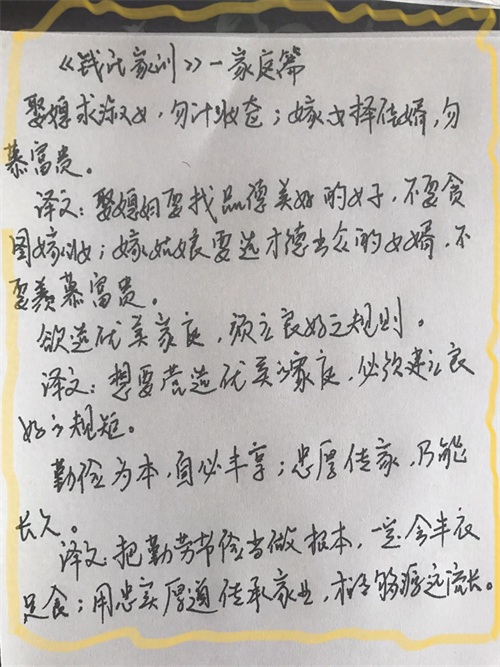 《钱氏家训》—家庭篇
娶媳求淑女,勿计妆奁;嫁女择佳婿,勿
慕富贵。
译文:娶媳妇要找品德美好的女子,不要贪
图嫁妆;嫁姑娘要选才德出众的女婿,不
要羡慕富贵。
欲造优美家庭,须立良好之规则。
译文:想要营造优美的家庭,必须建立良
好之规矩。
勤俭为本,自必丰亨;忠厚传家,乃能
长久。
译文:把勤劳节俭当做根本,一定会丰衣
足食;用忠实厚道传承家业,才能够源远流长。